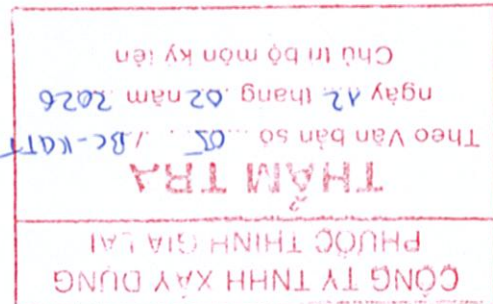 CÔNG TY TNHH XÂY DỰNG
PHƯỚC THỊNH GIA LAI
THẨM TRA
Theo Văn bản số ...05... / BC-KQTT
ngày 12 tháng 02 năm 2026
Chủ trì bộ môn ký tên